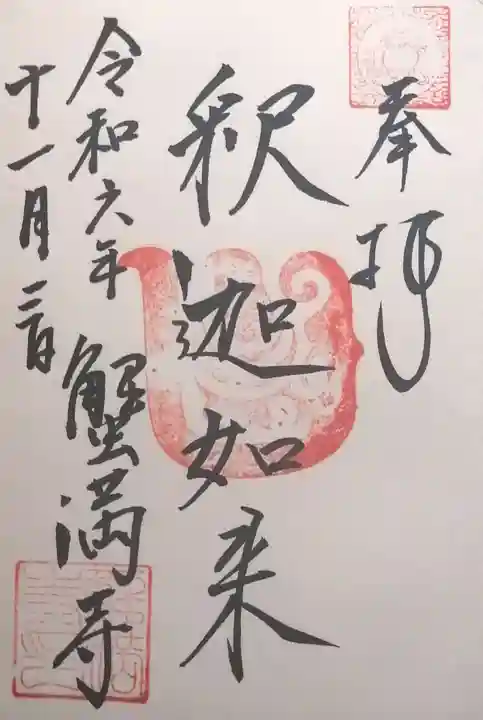 奉拝
釈迦如来
蟹満寺
令和六年
十一月三日